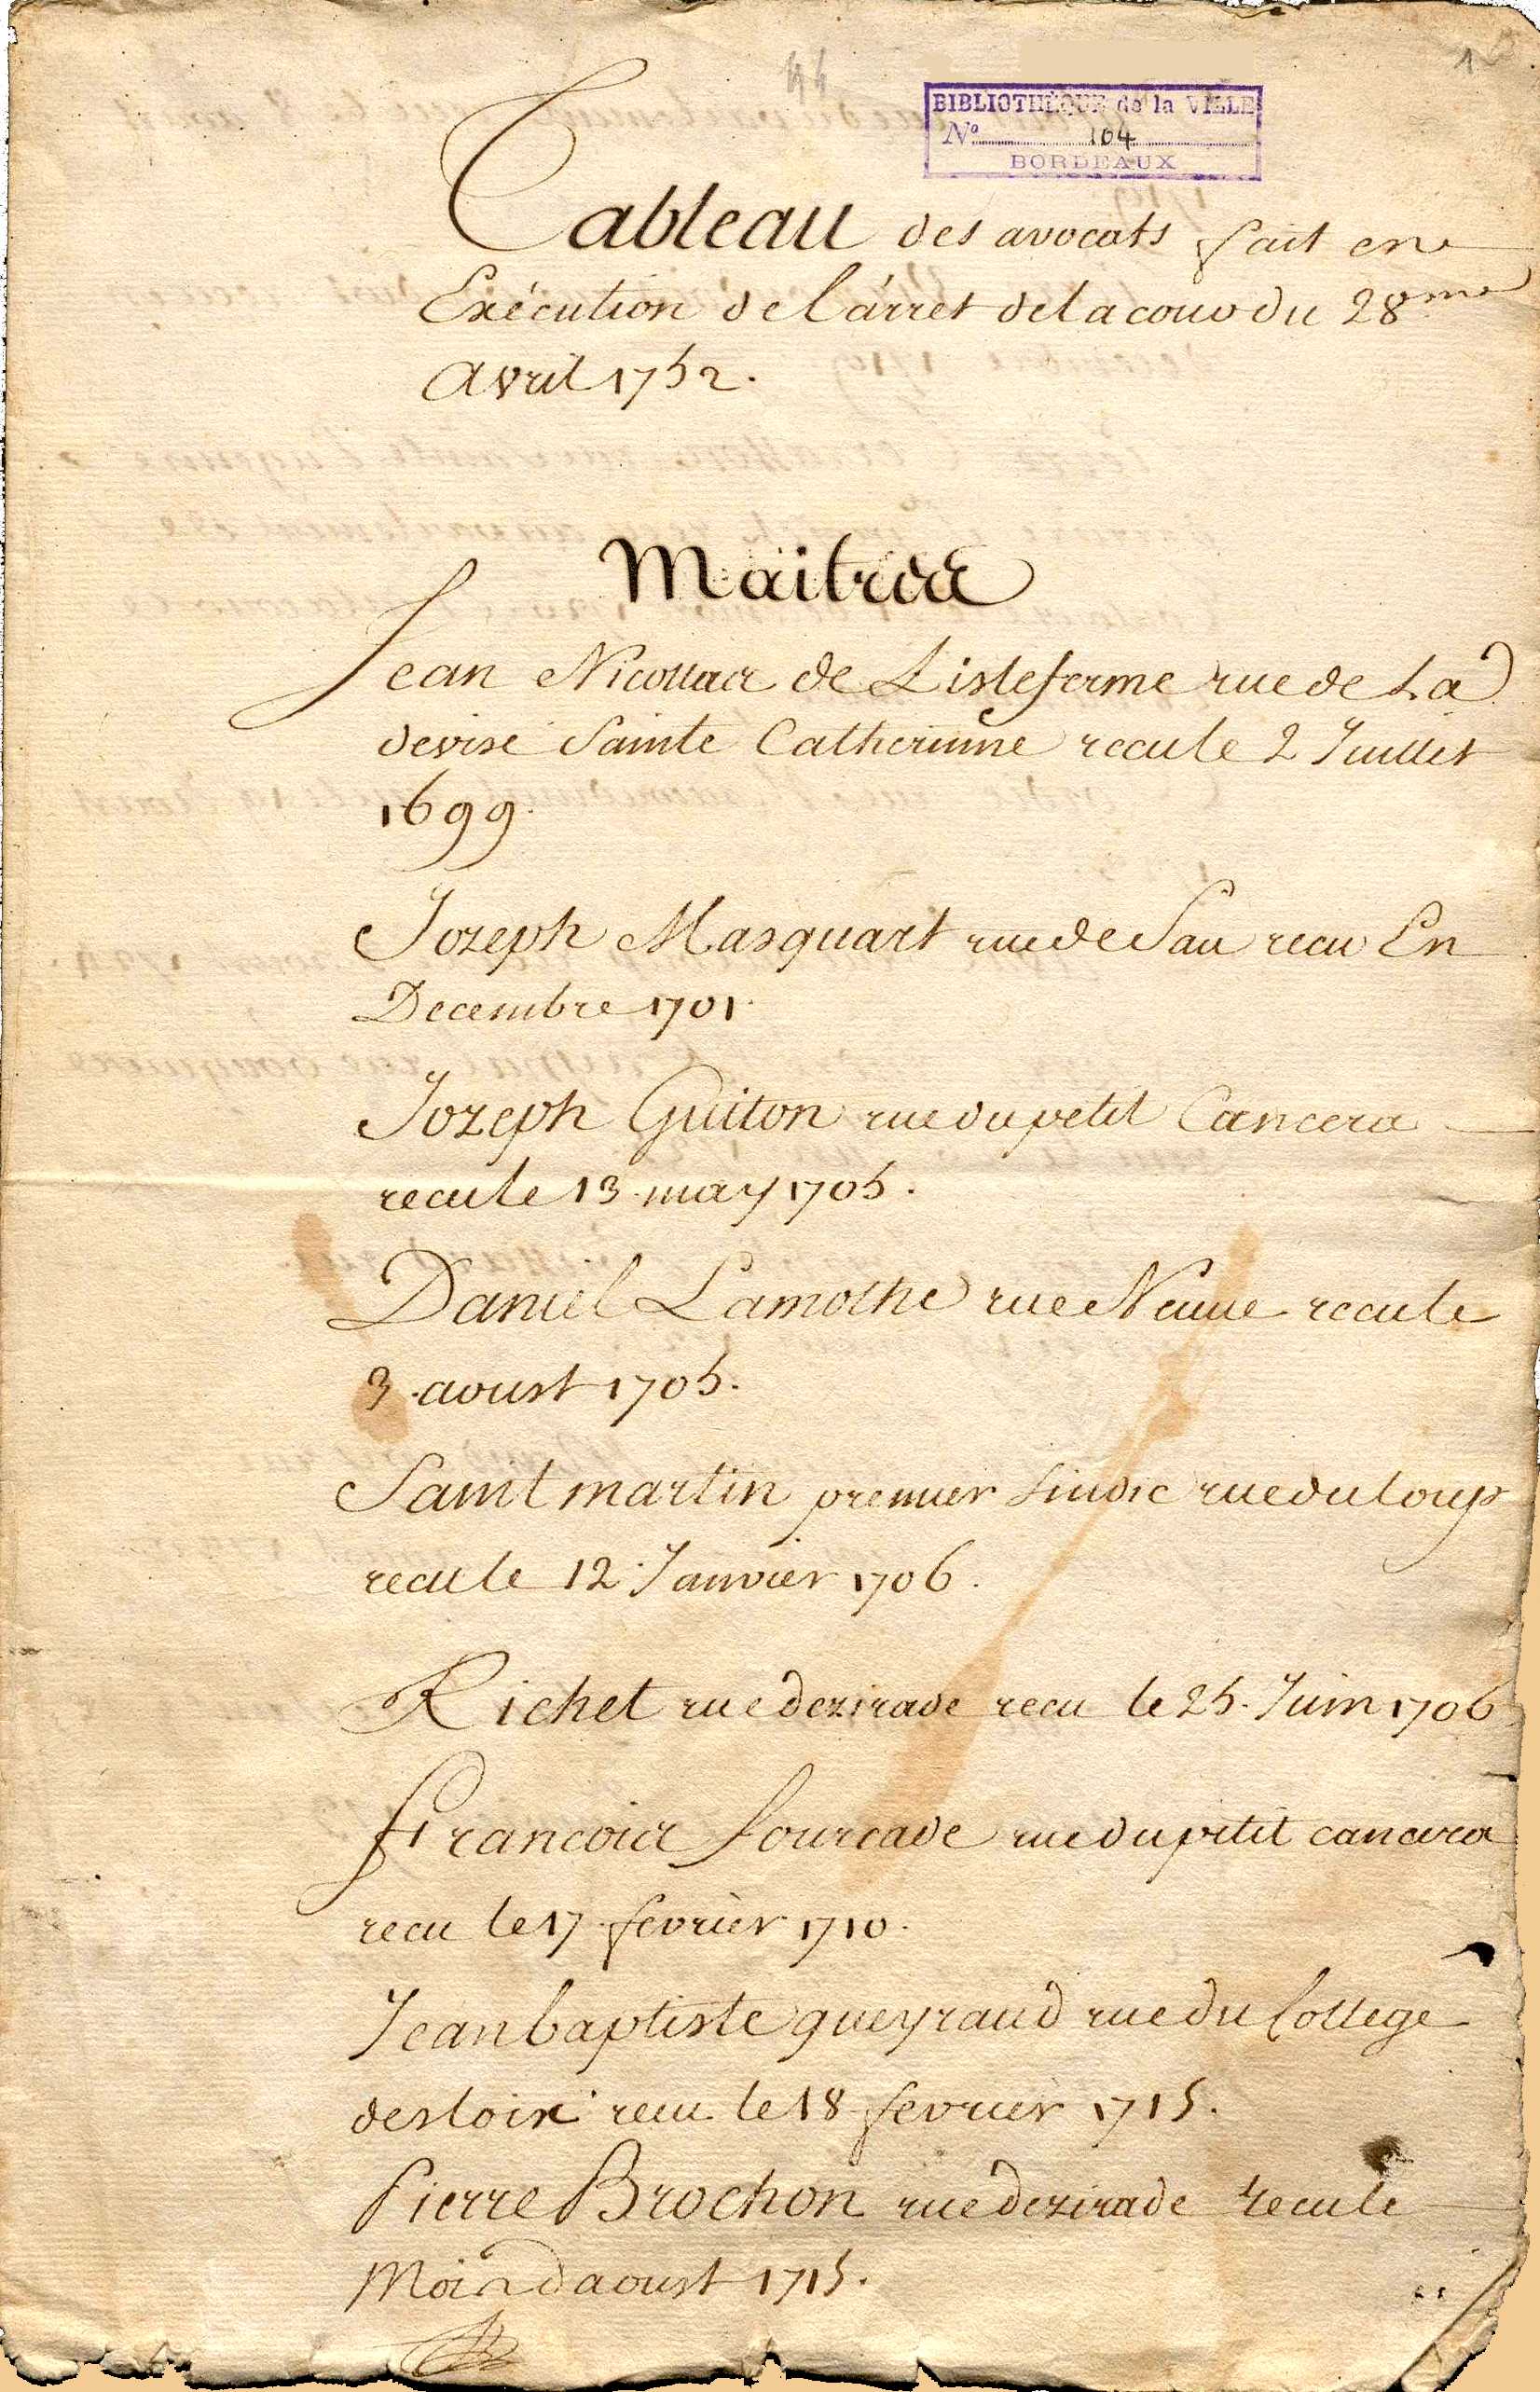 44
1
BIBLIOTHÈQUE de la VILLE
Nº 104
BORDEAUX
Tableau des avocats fait en
Exécution de l'árret de la cour du 28me
avril 1752.
Maitres
Jean Nicolas de Lisleferme rue de La
devise Sainte Catherinne recu le 2 Juillet
1699.
Jozeph Masquart rue de Sau recu En
Decembre 1701.
Jozeph Guiton rue du petit Cancera
recu le 13. may 1705.
Daniel Lamothe rue Neuve recu le
3. aoust 1705.
Saint martin premier sindic rue du loup
recu le 12. Janvier 1706.
Richet rue dezirade recu le 25. Juin 1706
francois fourcade rue du petit cancera
recu le 17. fevrier 1710.
Jean baptiste gueyraud rue du College
des loix recu le 18 fevrier 1715.
Pierre Brochon rue dezirade recu le
Mois daoust 1715.